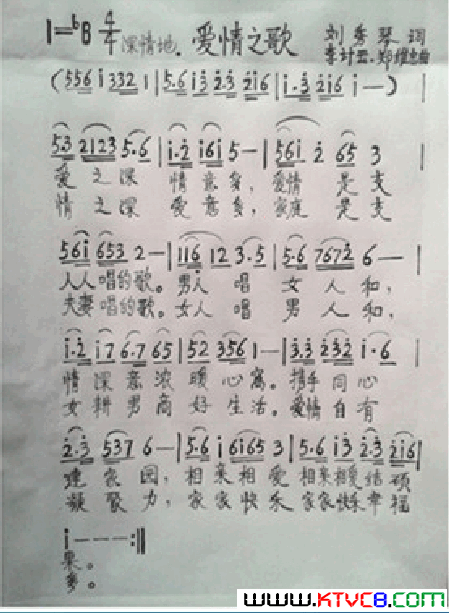 1=♭B 4/4 深情地. 爱情之歌 刘秀琴 词
李计 郑维忠曲
(556 i 332 1 | 5.6 i3 2.3 2i6 | i.3 2i6 i —) |
53 2123 5.6 | i.2 i6i 5 — | 56i 2 65 3 |
爱之深 情意多, 爱情 是支
情之深 爱意多, 家庭 是支
56i 653 2 — | 116 12 3.5 | 5.6 7672 6 — |
人人唱的歌。男人 唱 女人和,
夫妻唱的歌。女人 唱 男人和,
i.2 i7 6.7 65 | 52 356 1 — | 3.3 232 i.6 |
情深意浓暖心窝。携手同心
女耕男商好生活。爱情自有
2.3 537 6 — | 5.6 i 6i65 3 | 5.6 i3 2.3 2i6 |
建家园, 相亲相爱 相亲相爱结硕
凝聚力, 家家快乐 家家快乐幸福
i — — — :‖
果。
多。
www.KTVC8.com